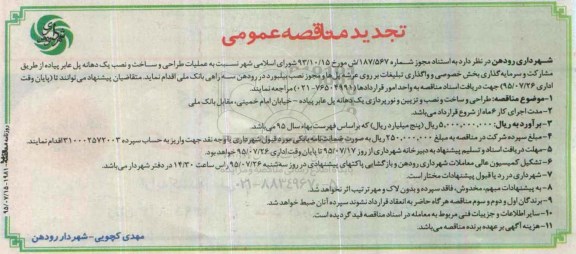 تجدید مناقصه عمومی
شهرداری رودهن در نظر دارد به استناد مجوز شماره ۱۸۷/۵۶۷/ش مورخ ۹۳/۱۰/۱۵ شورای اسلامی شهر نسبت به عملیات طراحی و ساخت و نصب یک دهانه پل عابر پیاده از طریق
مشارکت و سرمایه گذاری بخش خصوصی و واگذاری تبلیغات بر روی عرشه پل و مجوز نصب بیلبورد در رودهن سه راهی بانک ملی اقدام نماید. متقاضیان پیشنهاد می توانند تا (پایان وقت
اداری ۹۵/۰۷/۲۶) جهت دریافت اسناد مناقصه به واحد امور قراردادها (۷۶۵۰۴۹۹۱-۰۲۱) مراجعه نمایند.
۱- موضوع مناقصه: طراحی و ساخت و نصب و تزیین و نورپردازی یک دهانه پل عابر پیاده - خیابان امام خمینی، مقابل بانک ملی
۲- مدت اجرای کار ۶ ماه از شروع قرارداد می باشد.
۳- برآورد به ریال: ۵,۰۰۰,۰۰۰,۰۰۰ ریال (پنج میلیارد ریال) که براساس فهرست بهاء سال ۹۵ می باشد.
۴- مبلغ سپرده شرکت در مناقصه به مبلغ ۲۵۰,۰۰۰,۰۰۰ ریال به صورت ضمانت نامه بانکی مورد قبول شهرداری یا وجه نقد جهت واریز به حساب سپرده ۳۱۰۰۰۲۵۷۲۰۰۳ اقدام نمایند.
۵- مهلت دریافت اسناد و تسلیم پیشنهاد به دبیرخانه شهرداری از روز ۹۵/۰۷/۱۷ تا پایان وقت اداری ۹۵/۰۷/۲۶ خواهد بود.
۶- تشکیل کمیسیون عالی معاملات شهرداری رودهن و بازگشایی پاکتهای پیشنهادی در روز سه شنبه ۹۵/۰۷/۲۶ راس ساعت ۱۴/۳۰ در دفتر شهردار می باشد.
۷- شهرداری در رد یا قبول پیشنهادات مختار است.
۸- به پیشنهادات مبهم، مخدوش، فاقد سپرده و بدون لاک و مهر ترتیب اثر نخواهد شد.
۹- برندگان اول و دوم و سوم مناقصه هرگاه حاضر به انعقاد قرارداد نشوند سپرده آنان ضبط خواهد شد.
۱۰- سایر اطلاعات و جزییات فنی مربوط به معامله در اسناد مناقصه قید گردیده است.
۱۱- هزینه آگهی بر عهده برنده مناقصه می باشد.
مهدی کچویی - شهردار رودهن
۹۵/۰۷/۱۵